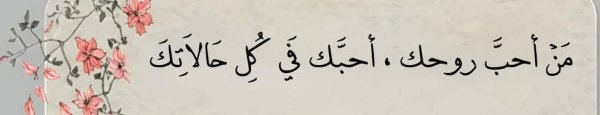 مَنْ أحبَّ روحك ، أحبَّك فَي كُلِ حَالاَتِكَ